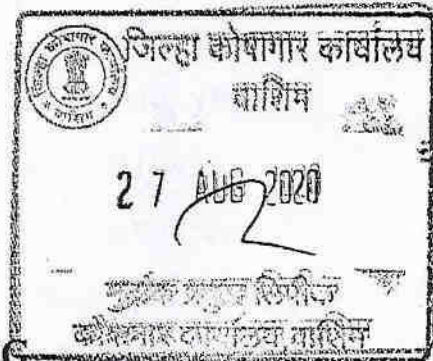 जिल्हा कोषागार कार्यालय
वाशिम
27 AUG 2020
मुद्रांक प्रमुख लिपीक
कोषागार कार्यालय वाशिम